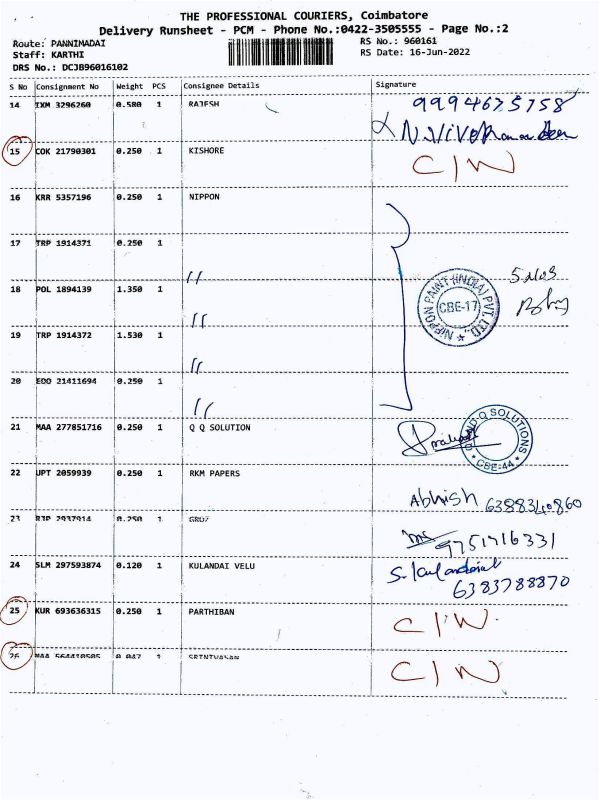 THE PROFESSIONAL COURIERS, Coimbatore
Delivery Runsheet - PCM - Phone No.:0422-3505555 - Page No.:2
Route: PANNIMADAI
Staff: KARTHI
DRS No.: DCJB96016102
RS No.: 960161
RS Date: 16-Jun-2022
S No Consignment No Weight PCS Consignee Details Signature
14 IXM 3296260 0.580 1 RAJESH 9994675758
15 COK 21790301 0.250 1 KISHORE C/W
16 KRR 5357196 0.250 1 NIPPON
17 TRP 1914371 0.250 1 "
18 POL 1894139 1.350 1 "
19 TRP 1914372 1.530 1 "
20 EDO 21411694 0.250 1 "
NIPPON PAINT (INDIA) PVT. LTD. CBE-17
21 MAA 277851716 0.250 1 Q Q SOLUTION
Q AND Q SOLUTIONS CBE-44
22 UPT 2059939 0.250 1 RKM PAPERS Abhish 6388340860
23 RJP 2937914 0.250 1 9751716331
24 SLM 297593874 0.120 1 KULANDAI VELU 6383788870
25 KUR 693636315 0.250 1 PARTHIBAN C/W
26 MAA 564410505 0.047 1 SRINIVASAN C/W